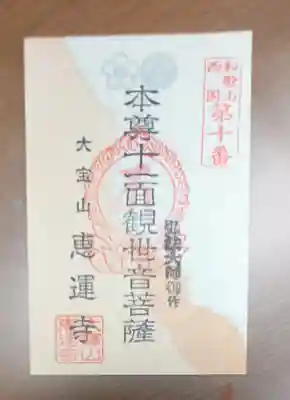 和歌山
西国
第十番
弘法大師御作
本尊十一面観世音菩薩
大宝山 恵運寺